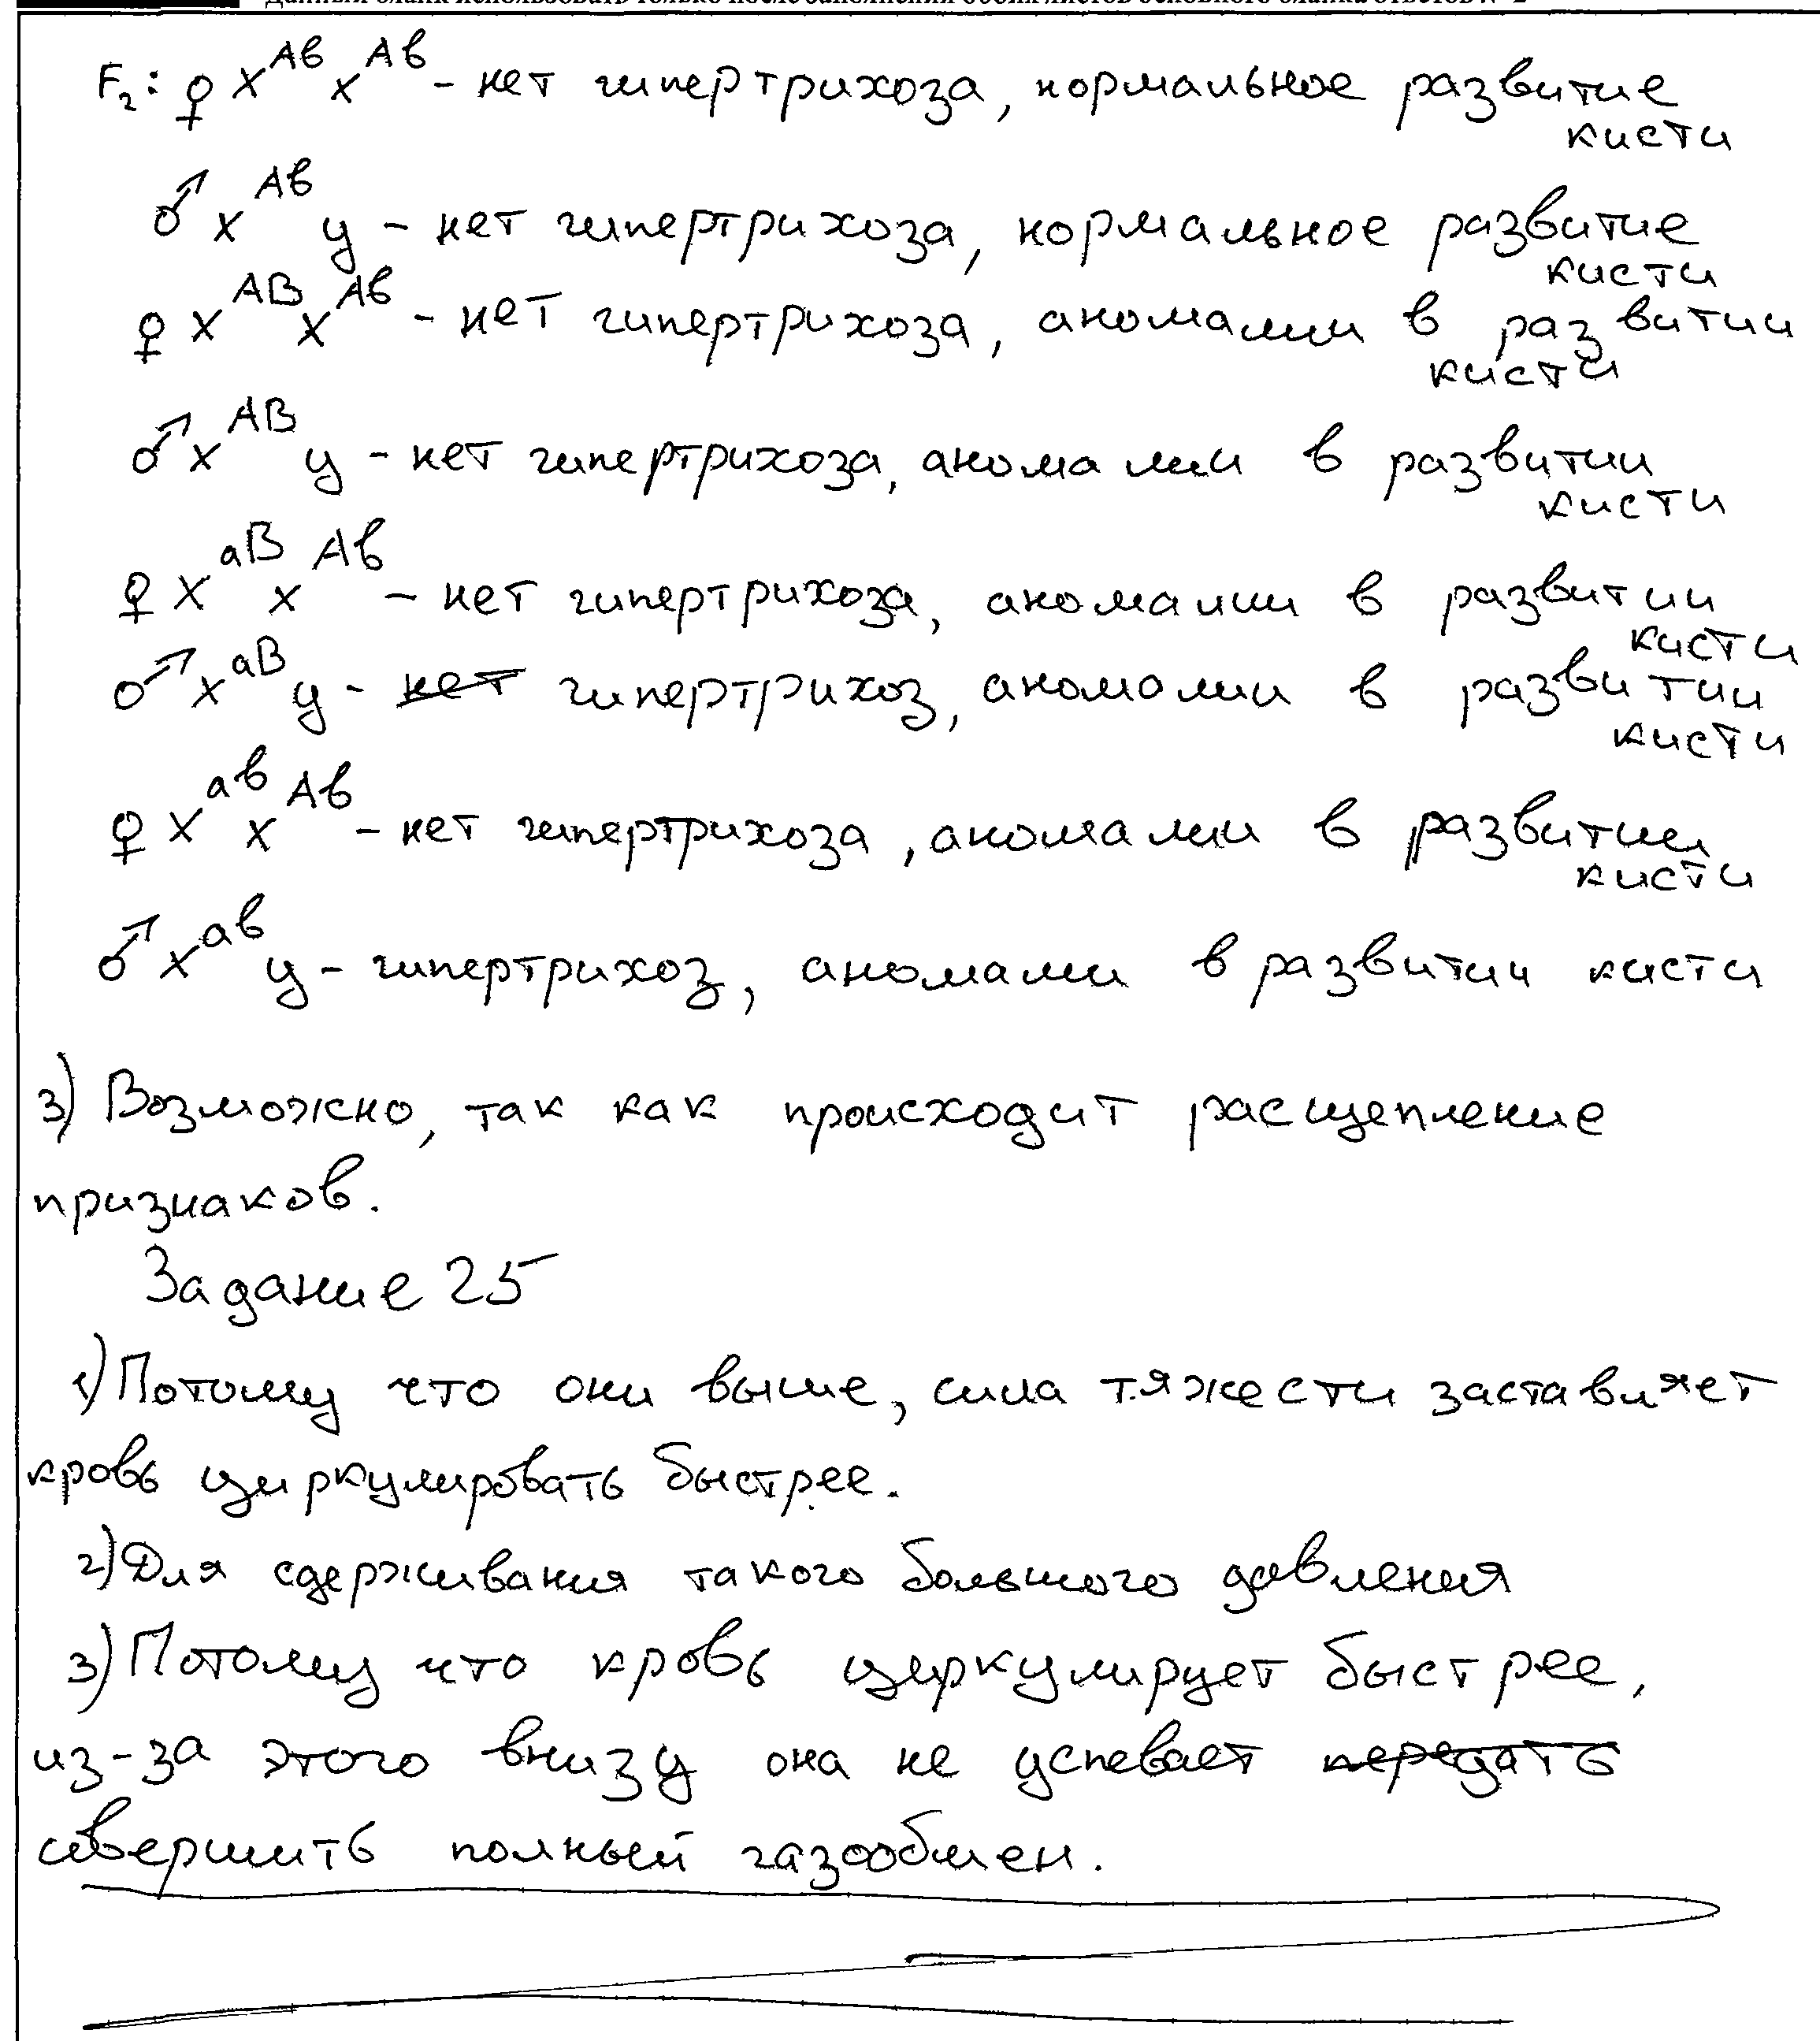 Данный бланк использовать только после заполнения обоих листов основного бланка ответов № 2
F₂: ♀ X^Aв X^Aв - нет гипертрихоза, нормальное развитие
кисти
♂ X^Aв У - нет гипертрихоза, нормальное развитие
кисти
♀ X^AB X^Aв - нет гипертрихоза, аномалии в развитии
кисти
♂ X^AB У - нет гипертрихоза, аномалии в развитии
кисти
♀ X^aB X^Aв - нет гипертрихоза, аномалии в развитии
кисти
♂ X^aB У - нет гипертрихоз, аномалии в развитии
кисти
♀ X^aв X^Aв - нет гипертрихоза, аномалии в развитии
кисти
♂ X^aв У - гипертрихоз, аномалии в развитии кисти
3) Возможно, так как происходит расщепление
признаков.
Задание 25
1) Потому что они выше, сила тяжести заставляет
кровь циркулировать быстрее.
2) Для сдерживания такого большого давления
3) Потому что кровь циркулирует быстрее,
из-за этого внизу она не успевает передать
совершить полный газообмен.